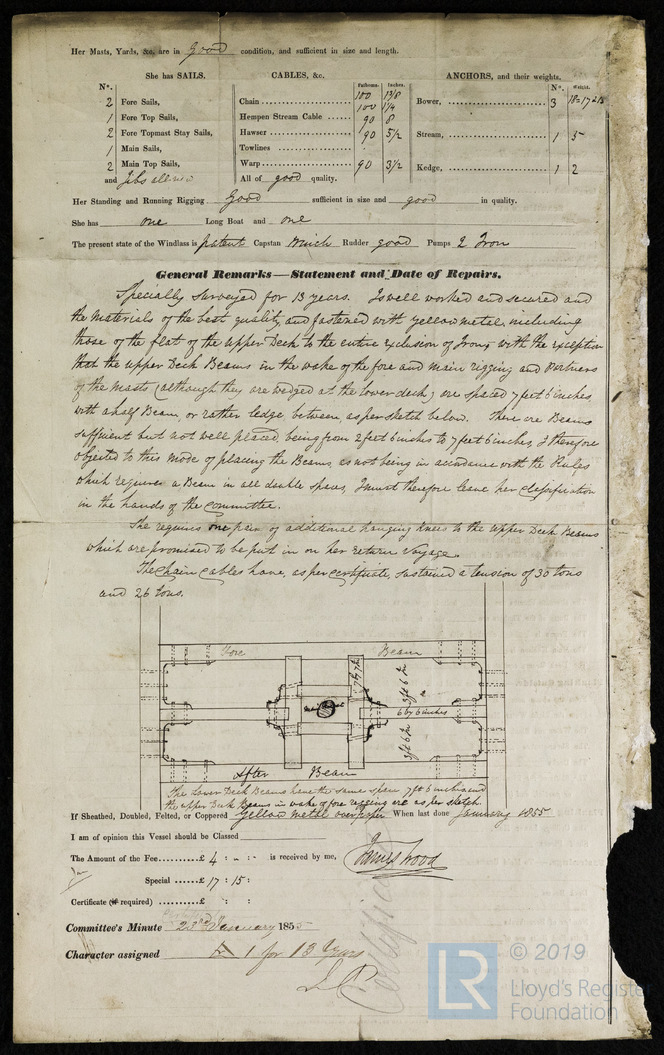 Her Masts, Yards, &c. are in good condition, and sufficient in size and length.
She has SAILS.
N°.
2 Fore Sails,
1 Fore Top Sails,
2 Fore Topmast Stay Sails,
1 Main Sails,
2 Main Top Sails,
and Jibs all new
CABLES, &c.
Fathoms. Inches.
Chain 100 1 3/8
100 1 1/4
Hempen Stream Cable 90 8
Hawser 90 5 1/2
Towlines
Warp 90 3 1/2
All of good quality.
ANCHORS, and their weights.
N°. Weight.
Bower, 3 18=17=15
Stream, 1 5
Kedge, 1 2
Her Standing and Running Rigging Good sufficient in size and good in quality.
She has one Long Boat and one
The present state of the Windlass is patent Capstan Winch Rudder good Pumps 2 Iron
General Remarks—Statement and Date of Repairs.
Specially Surveyed for 13 years. Is well worked and secured and
the materials of the best quality, and fastened with yellow metal, including
those of the flat of the upper Deck to the entire exclusion of Iron, with the exception
that the upper Deck Beams in the wake of the fore and main rigging and partners
of the masts (although they are wedged at the lower deck) are spaced 7 feet 6 inches,
with a half Beam, or rather ledge between, as per sketch below. There are Beams
sufficient but not well placed, being from 2 feet 6 inches to 7 feet 6 inches, I therefore
objected to this mode of placing the Beams, as not being in accordance with the Rules
which requires a Beam in all double spaces, I must therefore leave her classification
in the hands of the committee.
She requires one pair of additional hanging knees to the upper Deck Beams
which are promised to be put in on her return Voyage.
The Chain Cables have, as per certificate, sustained a tension of 30 tons
and 26 tons.
Fore Beam
7 by 7 In
3 ft 6 In
6 by 6 inches
3 ft 6 In
After Beam
The Lower Deck Beams have the same span 7 ft 6 inches and
the upper Deck Beams in wake of fore rigging are as per sketch.
If Sheathed, Doubled, Felted, or Coppered Yellow metal over felt When last done January 1855
I am of opinion this Vessel should be Classed
The Amount of the Fee £ 4 : - : - is received by me, James Wood
Special £ 17 : 15 :
Certificate (if required) £ : :
Committee's Minute 23rd January 1855
Character assigned A 1 for 13 Years
LR © 2019
Lloyd's Register
Foundation